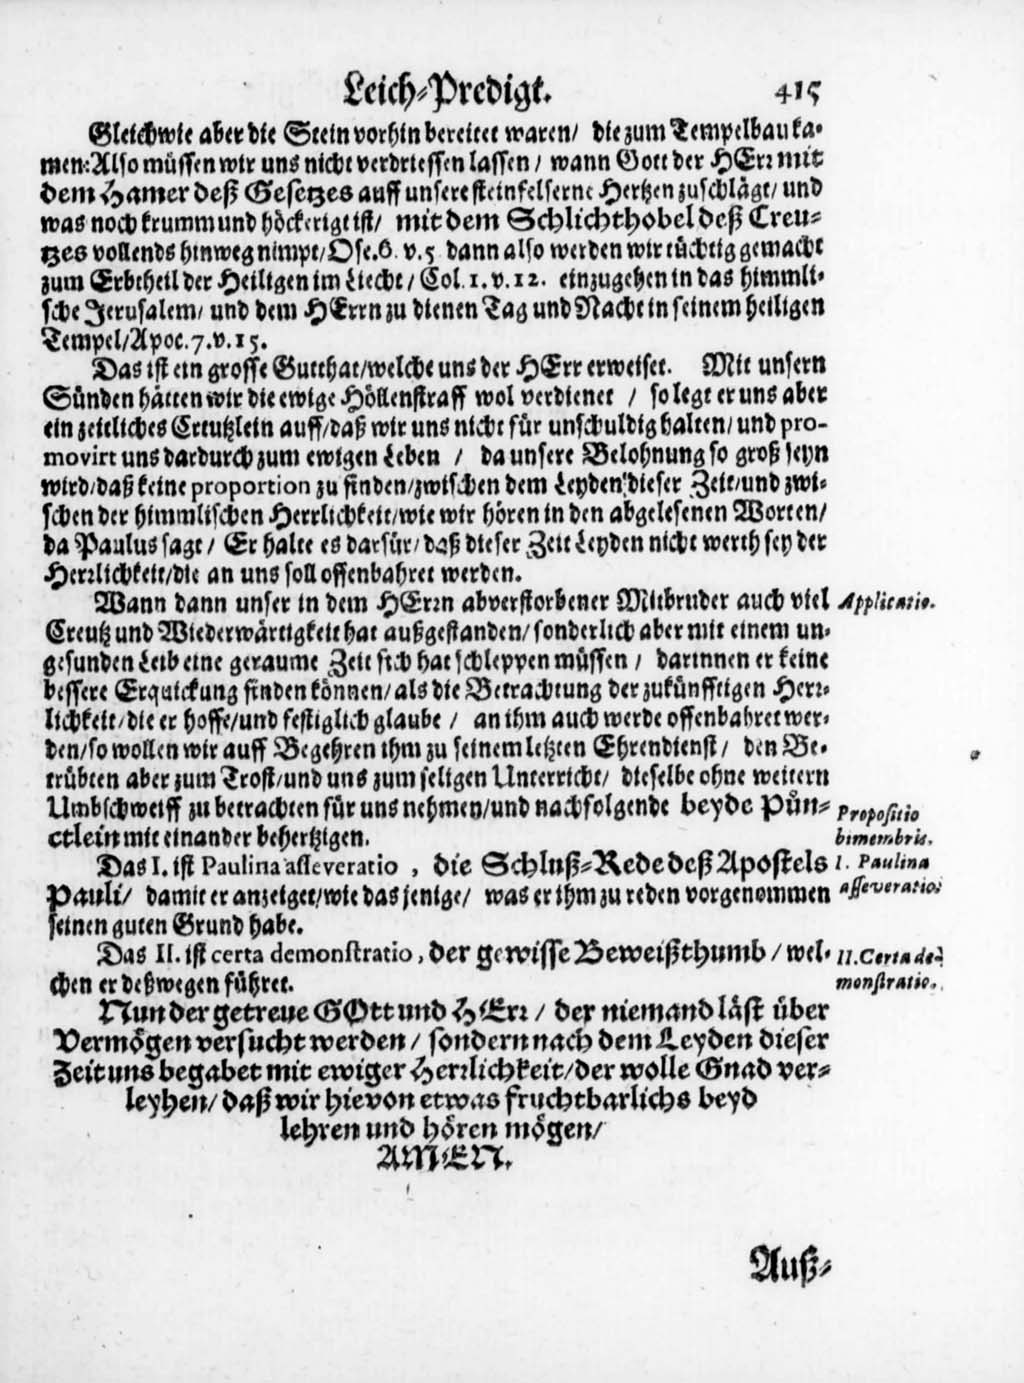 Leich-Predigt. 415
Gleichwie aber die Stein vorhin bereitet waren/ die zum Tempelbau ka-
men: Also müssen wir uns nicht verdriessen lassen / wann Gott der HErr mit
dem Hamer deß Gesetzes auff unsere steinfelserne Hertzen zuschlägt/ und
was noch krumm und höckerigt ist/ mit dem Schlichthobel deß Creu-
tzes vollends hinweg nimpt/ Ose. 6. v. 5 dann also werden wir tüchtig gemacht
zum Erbtheil der Heiligen im Liecht / Col. 1. v. 12. einzugehen in das himmli-
sche Jerusalem/ und dem HErrn zu dienen Tag und Nacht in seinem heiligen
Tempel/ Apoc. 7. v. 15.
Das ist ein grosse Gutthat/ welche uns der HErr erweiset. Mit unsern
Sünden hätten wir die ewige Höllenstraff wol verdienet / so legt er uns aber
ein zeitliches Creutzlein auff/ daß wir uns nicht für unschuldig halten/ und pro-
movirt uns dardurch zum ewigen Leben / da unsere Belohnung so groß seyn
wird/ daß keine proportion zu finden/ zwischen dem Leyden dieser Zeit/ und zwi-
schen der himmlischen Herrlichkeit/ wie wir hören in den abgelesenen Worten/
da Paulus sagt / Er halte es darfür/ daß dieser Zeit Leyden nicht werth sey der
Herrlichkeit/ die an uns soll offenbahret werden.
Wann dann unser in dem HErrn abverstorbener Mitbruder auch viel Applicatio.
Creutz und Wiederwärtigkeit hat außgestanden/ sonderlich aber mit einem un-
gesunden Leib eine geraume Zeit sich hat schleppen müssen / darinnen er keine
bessere Erquickung finden können/ als die Betrachtung der zukünfftigen Herr-
lichkeit/ die er hoffe/ und festiglich glaube / an ihm auch werde offenbahret wer-
den/ so wollen wir auff Begehren ihm zu seinem letzten Ehrendienst / den Be-
trübten aber zum Trost/ und uns zum seligen Unterricht/ dieselbe ohne weitern
Umbschweiff zu betrachten für uns nehmen/ und nachfolgende beyde Pün- Propositio
ctlein mit einander behertzigen. bimembris.
Das I. ist Paulina asseveratio, die Schluß-Rede deß Apostels I. Paulina
Pauli/ damit er anzeiget/ wie das jenige/ was er ihm zu reden vorgenommen asseveratio:
seinen guten Grund habe.
Das II. ist certa demonstratio, der gewisse Beweißthumb / wel- II. Certa de-
chen er deßwegen führet. monstratio.
Nun der getreue GOtt und HErr / der niemand läst über
Vermögen versucht werden / sondern nach dem Leyden dieser
Zeit uns begabet mit ewiger Herrlichkeit/ der wolle Gnad ver-
leyhen/ daß wir hievon etwas fruchtbarlichs beyd
lehren und hören mögen/
AMEN.
Auß-